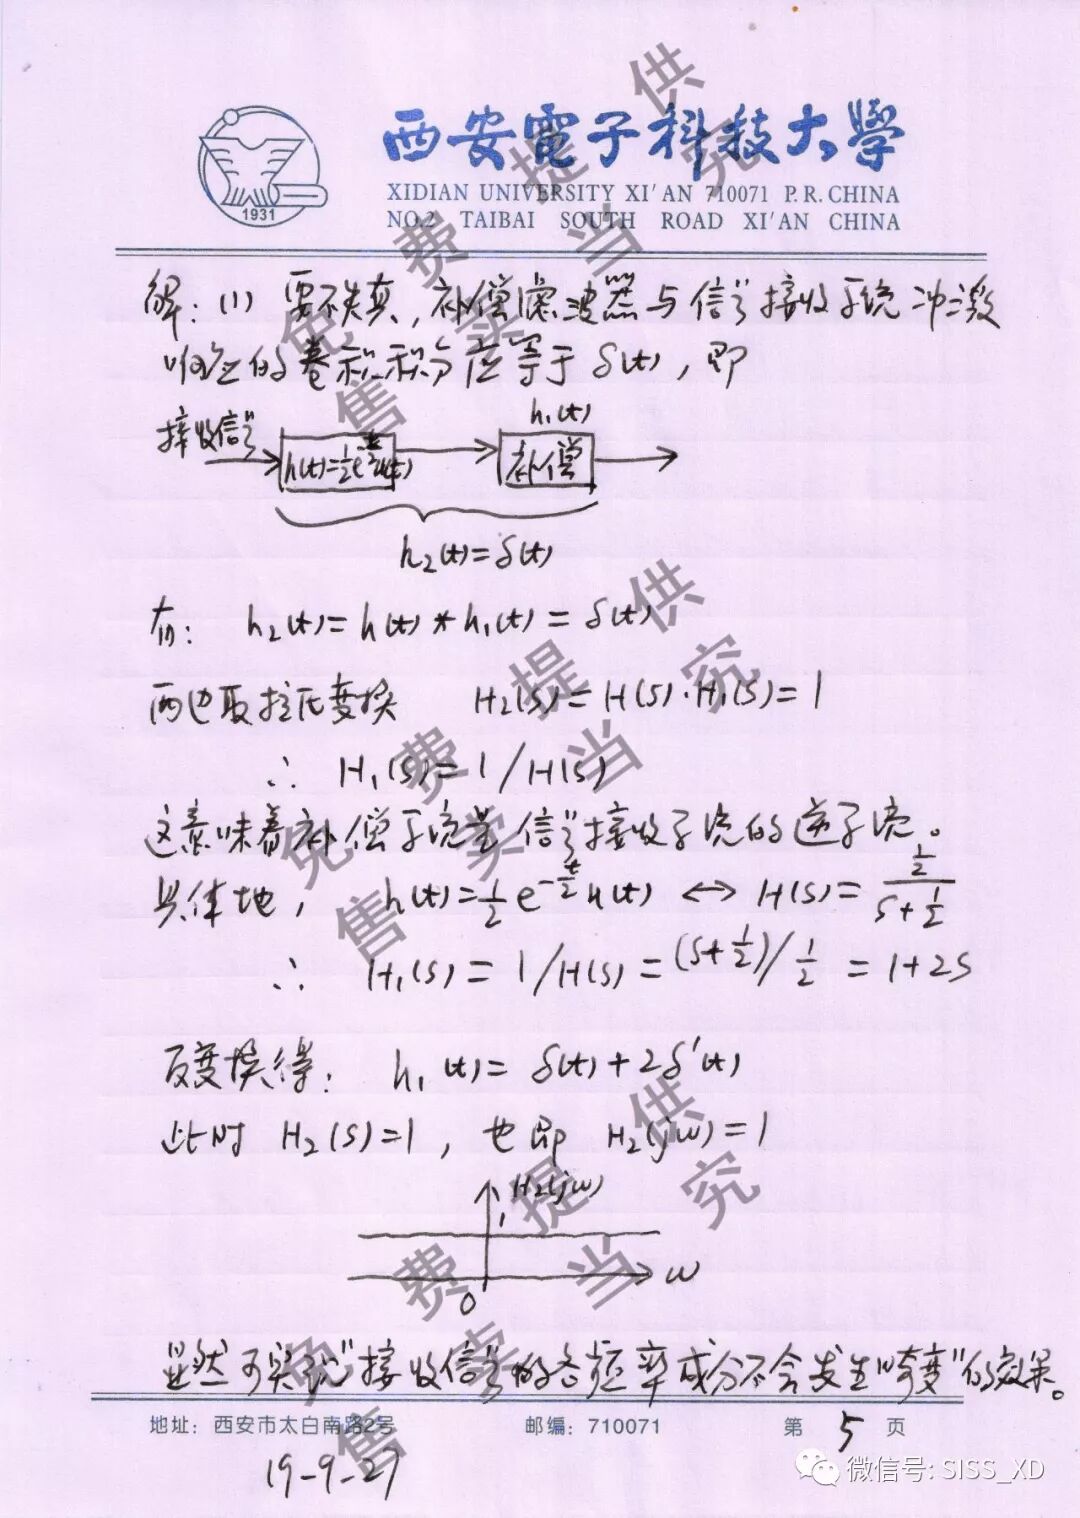 西安電子科技大學
XIDIAN UNIVERSITY XI'AN 710071 P.R.CHINA
NO.2 TAIBAI SOUTH ROAD XI'AN CHINA
1931
解：(1) 要不失真，补偿滤波器与信号接收系统冲激
响应的卷积积分应等于 δ(t)，即
h₁(t)
接收信号
h(t)=½e^(-t/2)u(t)
补偿
h₂(t)=δ(t)
有： h₂(t)=h(t)*h₁(t)=δ(t)
两边取拉氏变换 H₂(s)=H(s)·H₁(s)=1
∴ H₁(s)=1/H(s)
这意味着补偿系统是信号接收系统的逆系统。
具体地， h(t)=½e^(-t/2)u(t) ↔ H(s)=½/(s+½)
∴ H₁(s)=1/H(s)=(s+½)/½=1+2s
反变换得： h₁(t)=δ(t)+2δ'(t)
此时 H₂(s)=1，也即 H₂(jω)=1
H₂(jω)
1
0
ω
显然可实现"接收信号的各频率成分不会发生畸变"的效果。
地址：西安市太白南路2号 邮编：710071 第 5 页
19-9-27
微信号: SISS_XD
免费提供
售卖当究
免费提供
售卖当究
免费提供
售卖当究